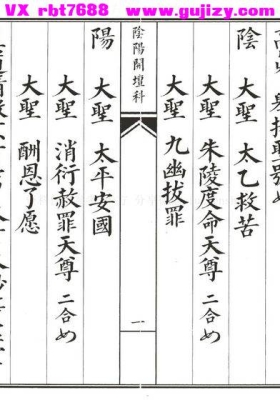 VX rbt7688  www.gujizy.com
陰 大聖 太乙救苦
大聖 朱陵度命天尊 二合め
大聖 九幽拔罪
陰陽開壇科
一
陽 大聖 太平安國
大聖 消衍赦罪天尊 二合め
大聖 酬恩了愿